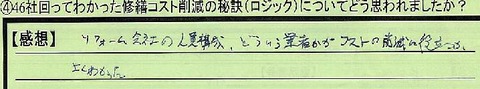 ④46社回ってわかった修繕コスト削減の秘訣(ロジック)についてどう思われましたか?
【感想】 リフォーム会社の人員構成、どういう業者がコストの削減に役立つか
よくわかった